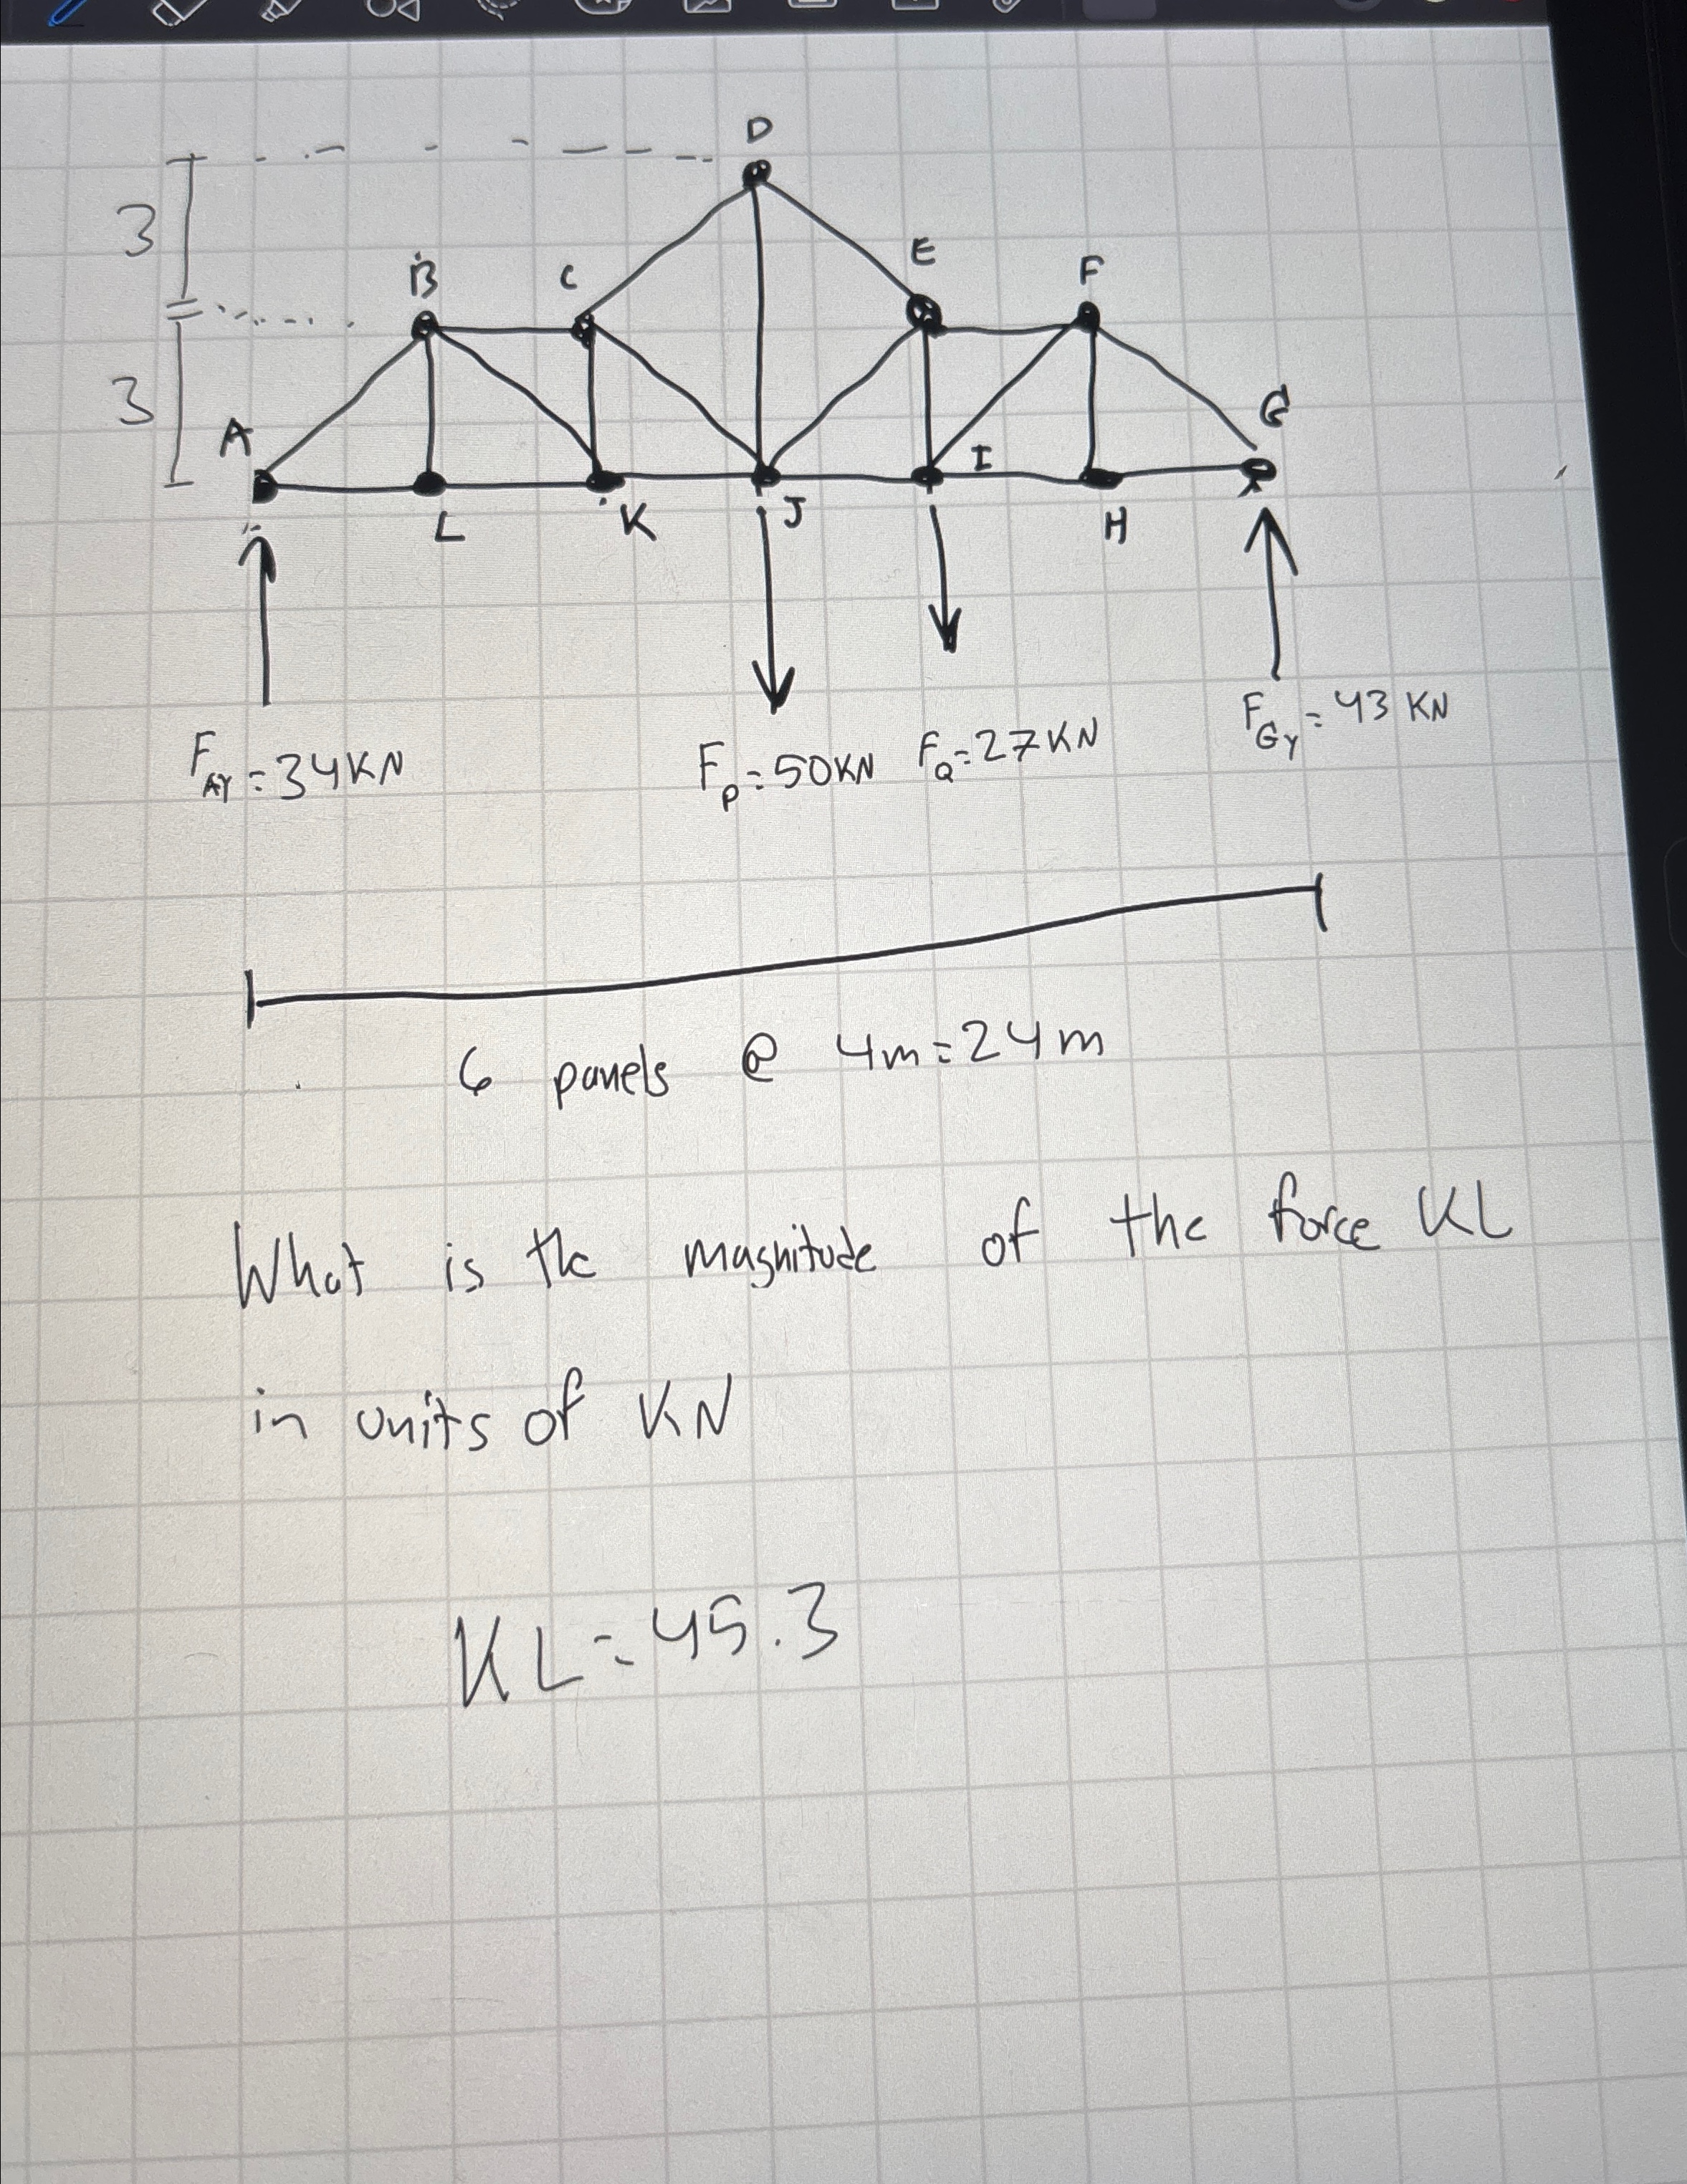 D
3
B
C
E
F
3
A
G
L
K
J
I
H
F_AY = 34KN
F_P = 50KN
F_Q = 27KN
F_GY = 43 KN
6 panels @ 4m = 24m
What is the magnitude of the force KL
in units of KN
KL = 45.3